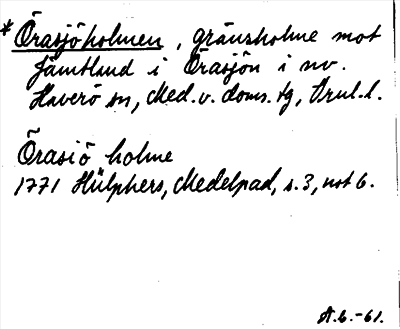 * Örasjöholmen, gränsholme mot
Jämtland i Örasjön i nv.
Haverö sn, Med. v. doms. tg, Vnl. l.
Örasiö holme
1771 Hülphers, Medelpad, s. 3, not 6.
A.b.-61.